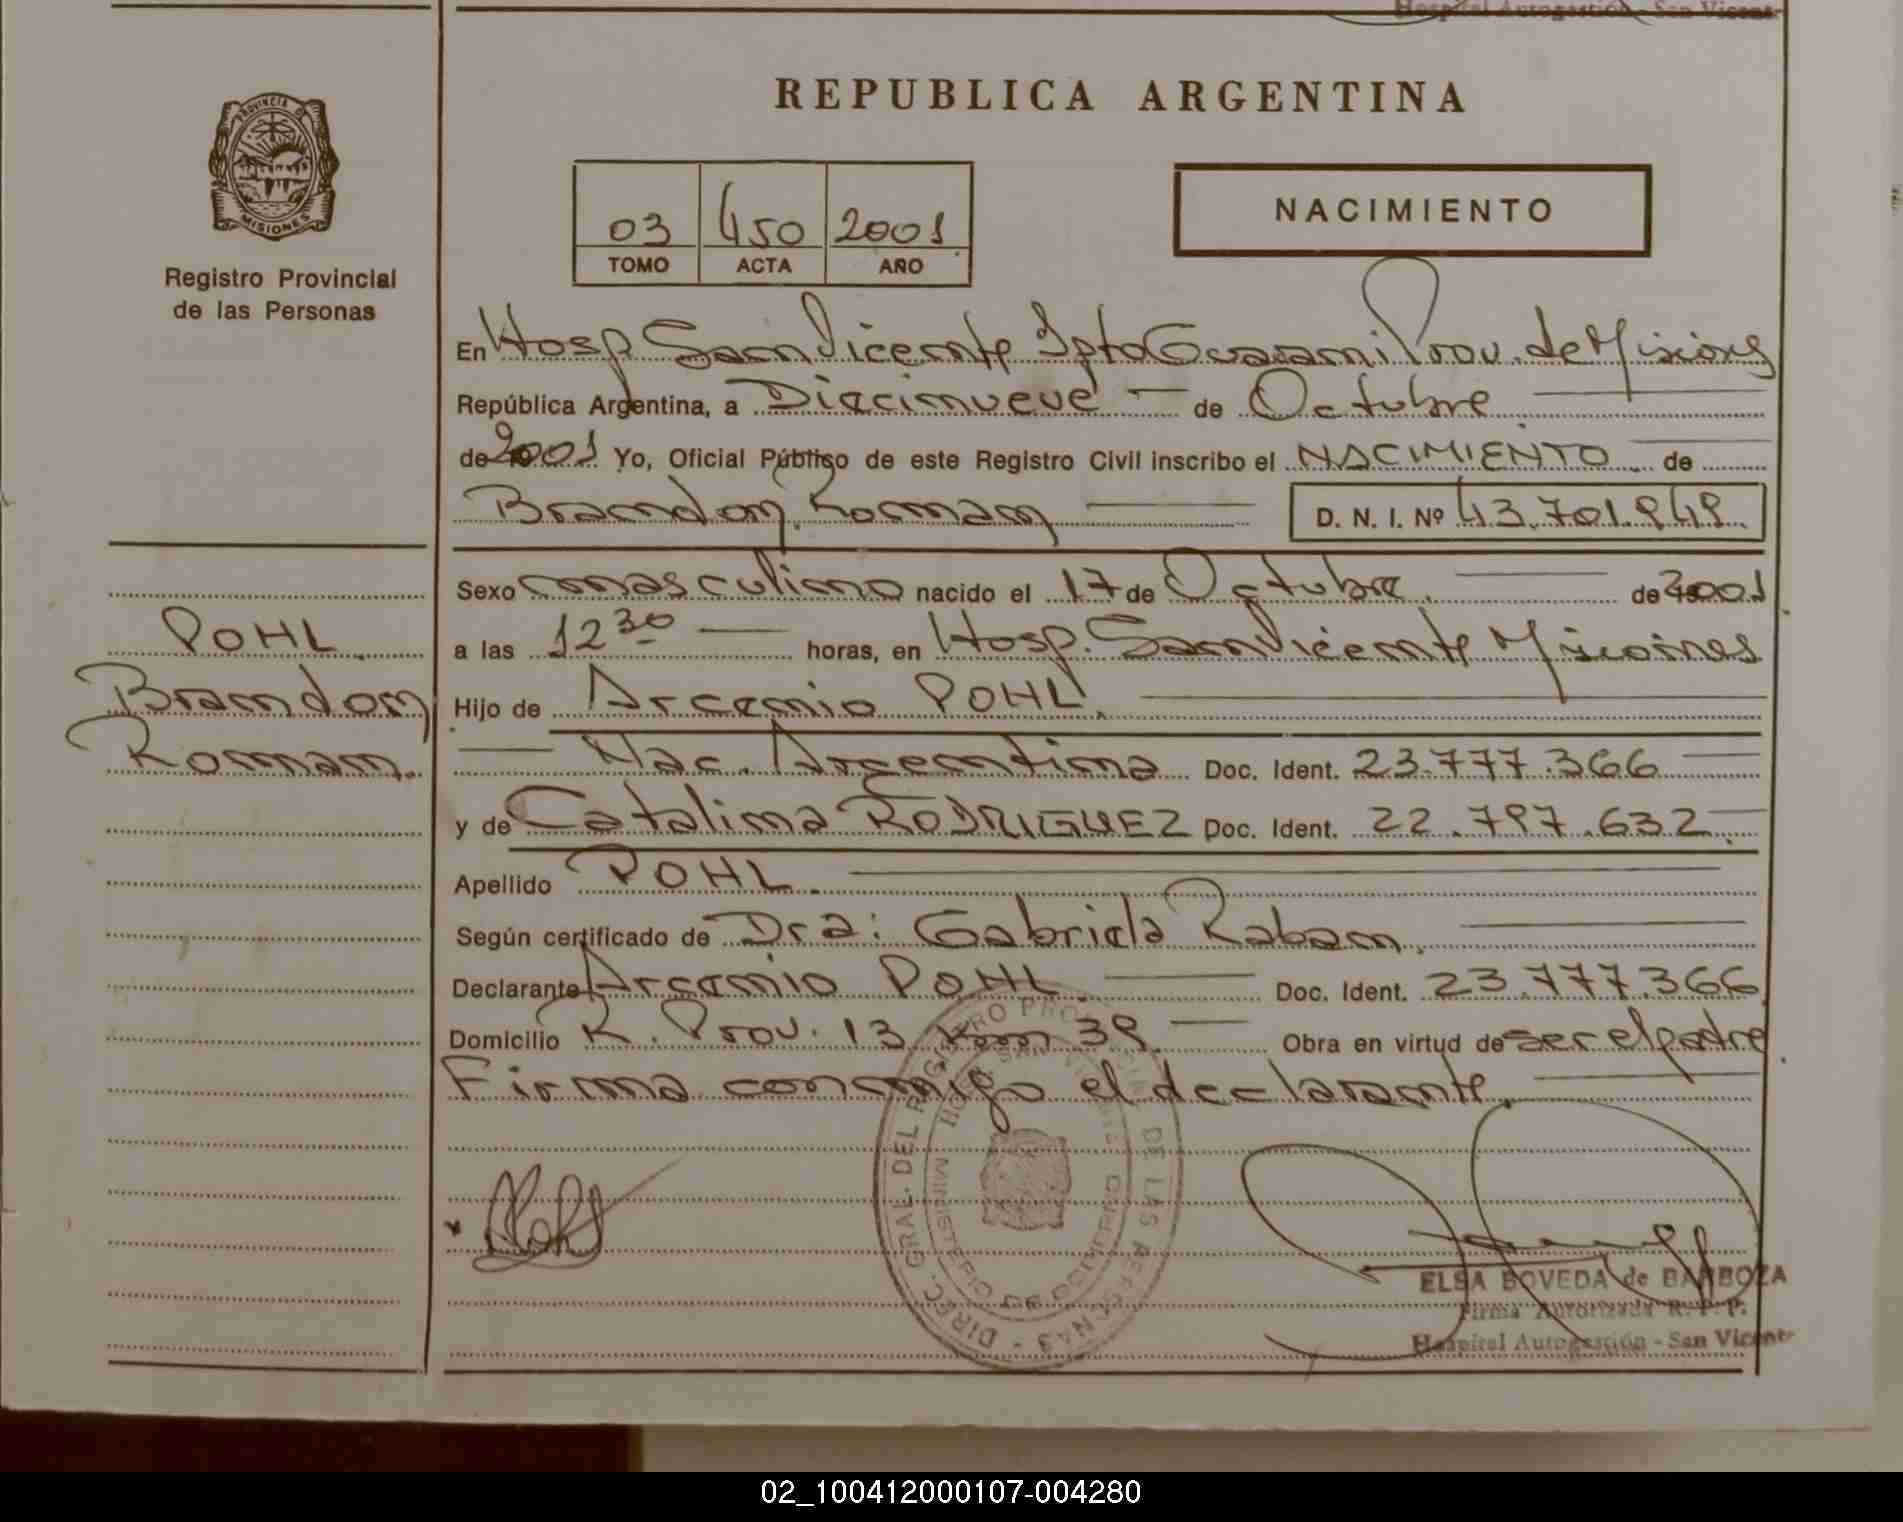 Hospital Autogestión - San Vicente
REPUBLICA ARGENTINA
PROVINCIA DE
MISIONES
Registro Provincial
de las Personas
03 450 2001
TOMO ACTA AÑO
NACIMIENTO
En Hosp San Vicente Dpto Guarani Prov. de Misiones
República Argentina, a Diecinueve de Octubre
de 2001 Yo, Oficial Público de este Registro Civil inscribo el NACIMIENTO de
Brandon Roman D. N. I. Nº 43.701.949
Sexo masculino nacido el 17 de Octubre de 2001
a las 12 30 horas, en Hosp. San Vicente Misiones
Hijo de Arcenio POHL.
Nac. Argentina Doc. Ident. 23.777.366
y de Catalina RODRIGUEZ Doc. Ident. 22.797.632
Apellido POHL.
Según certificado de Dra: Gabriela Raban.
Declarante Arcenio POHL. Doc. Ident. 23.777.366
Domicilio R. Prov. 13 Km 39 Obra en virtud de ser el padre
Firma conmigo el declarante.
POHL.
Brandon
Roman.
DIREC. GRAL. DEL REGISTRO PROVINCIAL DE LAS PERSONAS
MINISTERIO DE GOBIERNO
HOSP. SAN VICENTE
ELSA BOVEDA de BARBOZA
Firma Autorizada R. P. P.
Hospital Autogestión - San Vicente
02_100412000107-004280